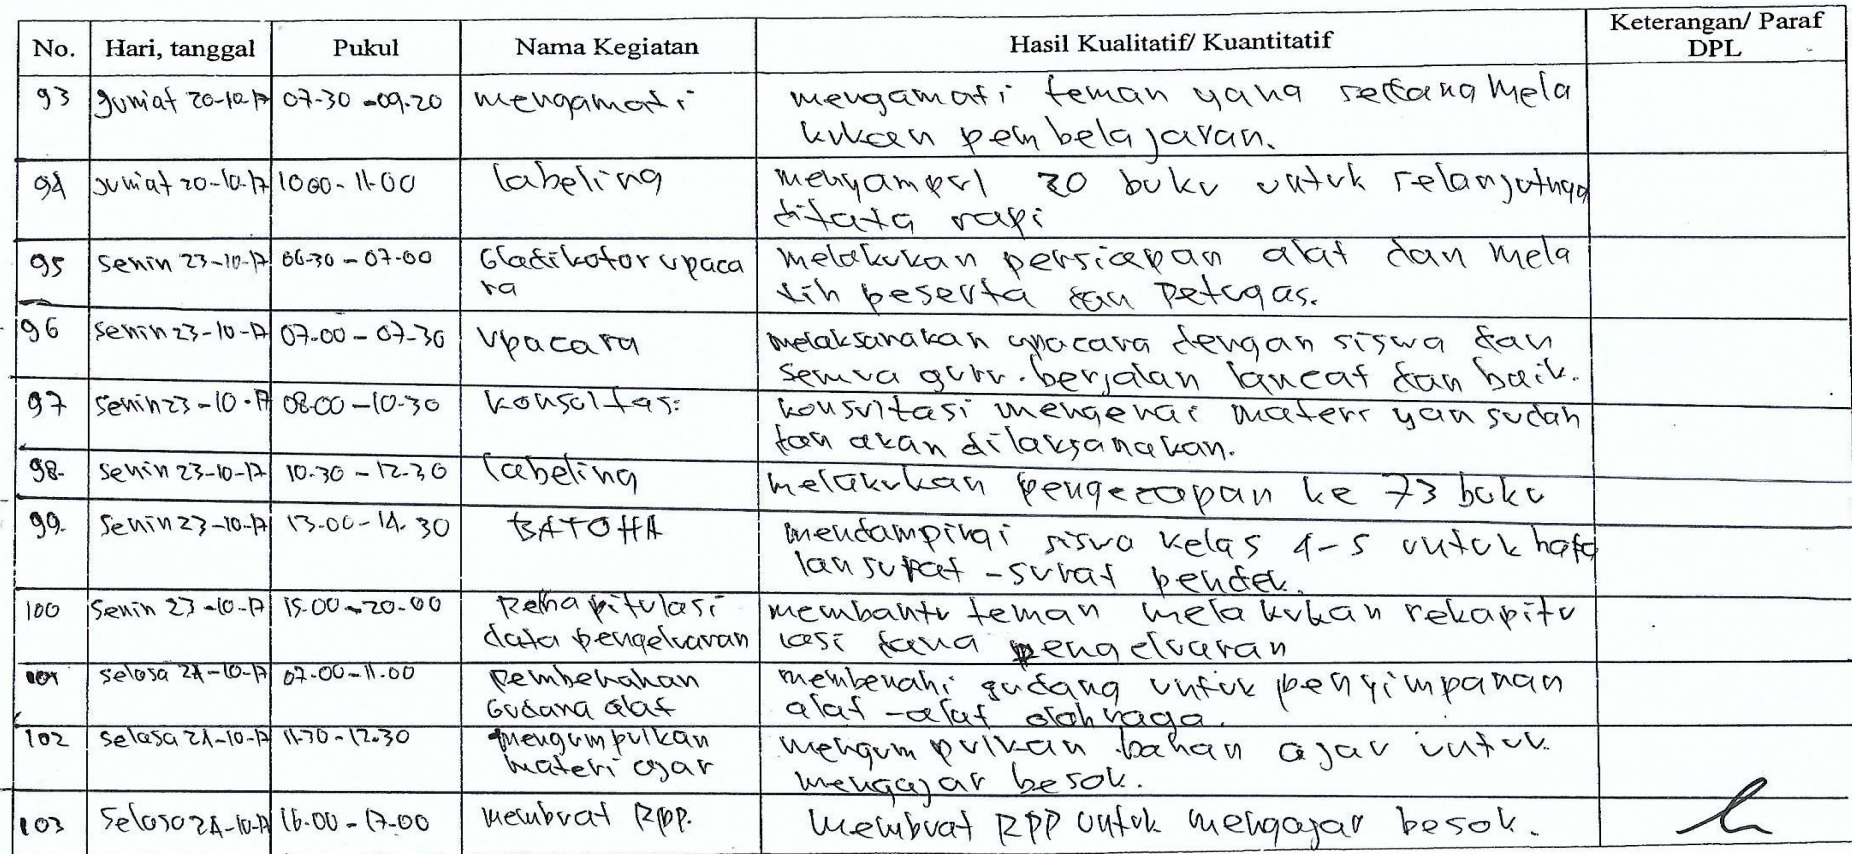 No. Hari, tanggal Pukul Nama Kegiatan Hasil Kualitatif/ Kuantitatif Keterangan/ Paraf DPL
93 Jum'at 20-10-17 07.30 - 09.20 mengamati mengamati teman yang sedang mela
kukan pembelajaran.
94 Jum'at 20-10-17 10.00 - 11.00 labeling menyampul 20 buku untuk selanjutnya
ditata rapi
95 Senin 23-10-17 06.30 - 07.00 Gladikotor upaca melakukan persiapan alat dan mela
ra tih peserta dan petugas.
96 Senin 23-10-17 07.00 - 07.30 Upacara melaksanakan upacara dengan siswa dan
semua guru. berjalan lancat dan baik.
97 Senin 23-10-17 08.00 - 10.30 konsultasi konsultasi mengenai materi yan sudah
dan akan dilaksanakan.
98. Senin 23-10-17 10.30 - 12.30 labeling melakukan pengecapan ke 73 buku
99. Senin 23-10-17 13.00 - 14.30 BATOHA mendampingi siswa kelas 4-5 untuk hafa
lan surat - surat pendek.
100 Senin 23-10-17 15.00 - 20.00 Rekapitulasi membantu teman melakukan rekapitu
data pengeluaran lasi dana pengeluaran
101 selasa 24-10-17 07.00 - 11.00 Pembenahan membenahi gudang untuk penyimpanan
Gudang alat alat - alat olahraga.
102 selasa 24-10-17 11.30 - 12.30 mengumpulkan mengumpulkan bahan ajar untuk
materi ajar mengajar besok.
103 Selasa 24-10-17 16.00 - 17.00 membuat RPP. membuat RPP untuk mengajar besok.